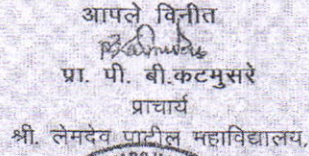 आपले विनीत
प्रा. पी. बी.कटमुसरे
प्राचार्य
श्री. लेमदेव पाटील महाविद्यालय,